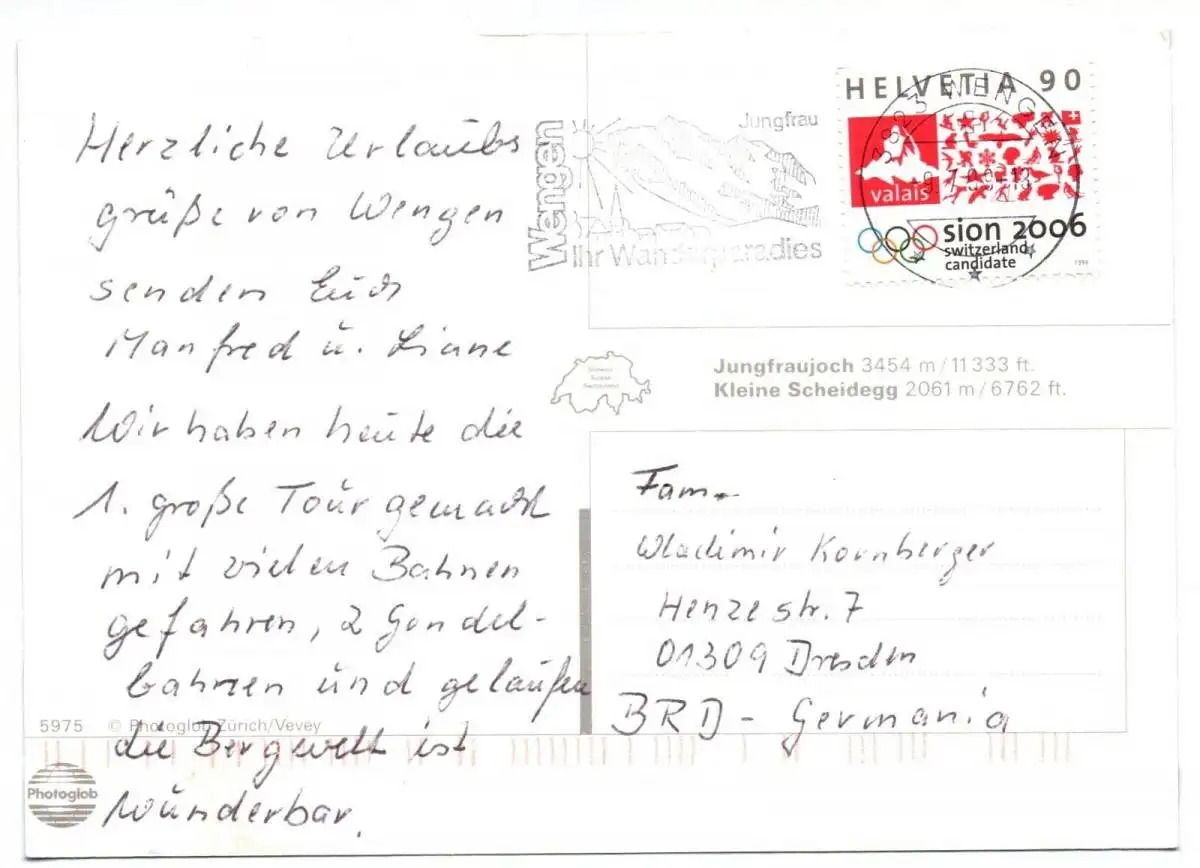 Herzliche Urlaubs
grüße von Wengen
senden Euch
Manfred u. Liane
Wir haben heute die
1. große Tour gemacht
mit vielen Bahnen
gefahren, 2 Gondel-
bahnen und gelaufen
die Bergwelt ist
Wunderbar.
5975 © Photoglob Zürich/Vevey
Photoglob
Wengen
Jungfrau
Ihr Wanderparadies
HELVETIA 90
3823 WENGEN
valais
sion 2006
switzerland
candidate
Schweiz
Suisse
Switzerland
Jungfraujoch 3454 m/11333 ft.
Kleine Scheidegg 2061 m/6762 ft.
Fam.
Wladimir Kornberger
Henzestr. 7
01309 Dresden
BRD - Germania